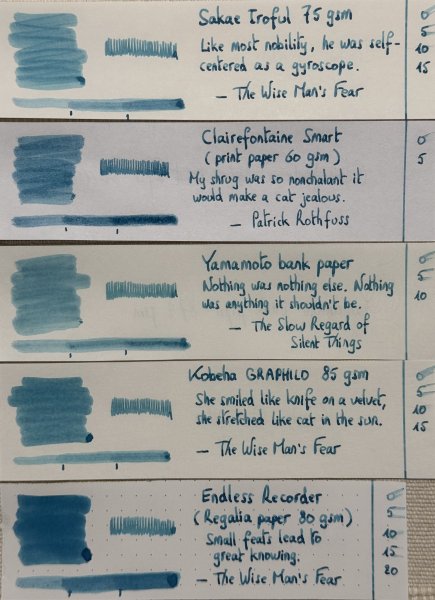 Sakae Iroful 75 gsm
Like most nobility, he was self-
centered as a gyroscope.
— The Wise Man's Fear
0
5
10
15
Clairefontaine Smart
(print paper 60 gsm)
My shrug was so nonchalant it
would make a cat jealous.
— Patrick Rothfuss
0
5
Yamamoto bank paper
Nothing was nothing else. Nothing
was anything it shouldn't be.
— The Slow Regard of
Silent Things
0
5
10
Kobeha GRAPHILO 85 gsm
She smiled like knife on a velvet,
she stretched like cat in the sun.
— The Wise Man's Fear
0
5
10
15
Endless Recorder
(Regalia paper 80 gsm)
Small feats lead to
great knowing.
— The Wise Man's Fear
0
5
10
15
20